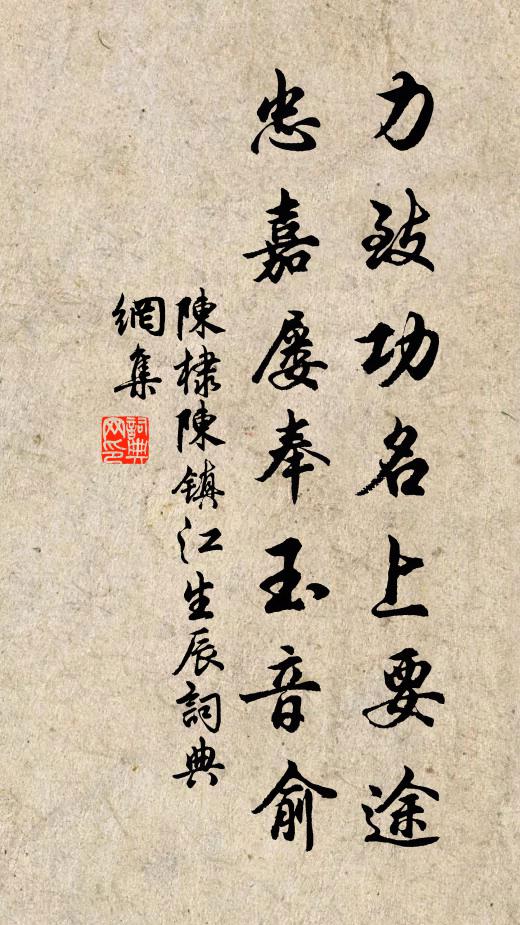 力致功名上要途
忠嘉屡奉玉音俞
陳棣陳鎮江生辰詞典
網集
詞典網印